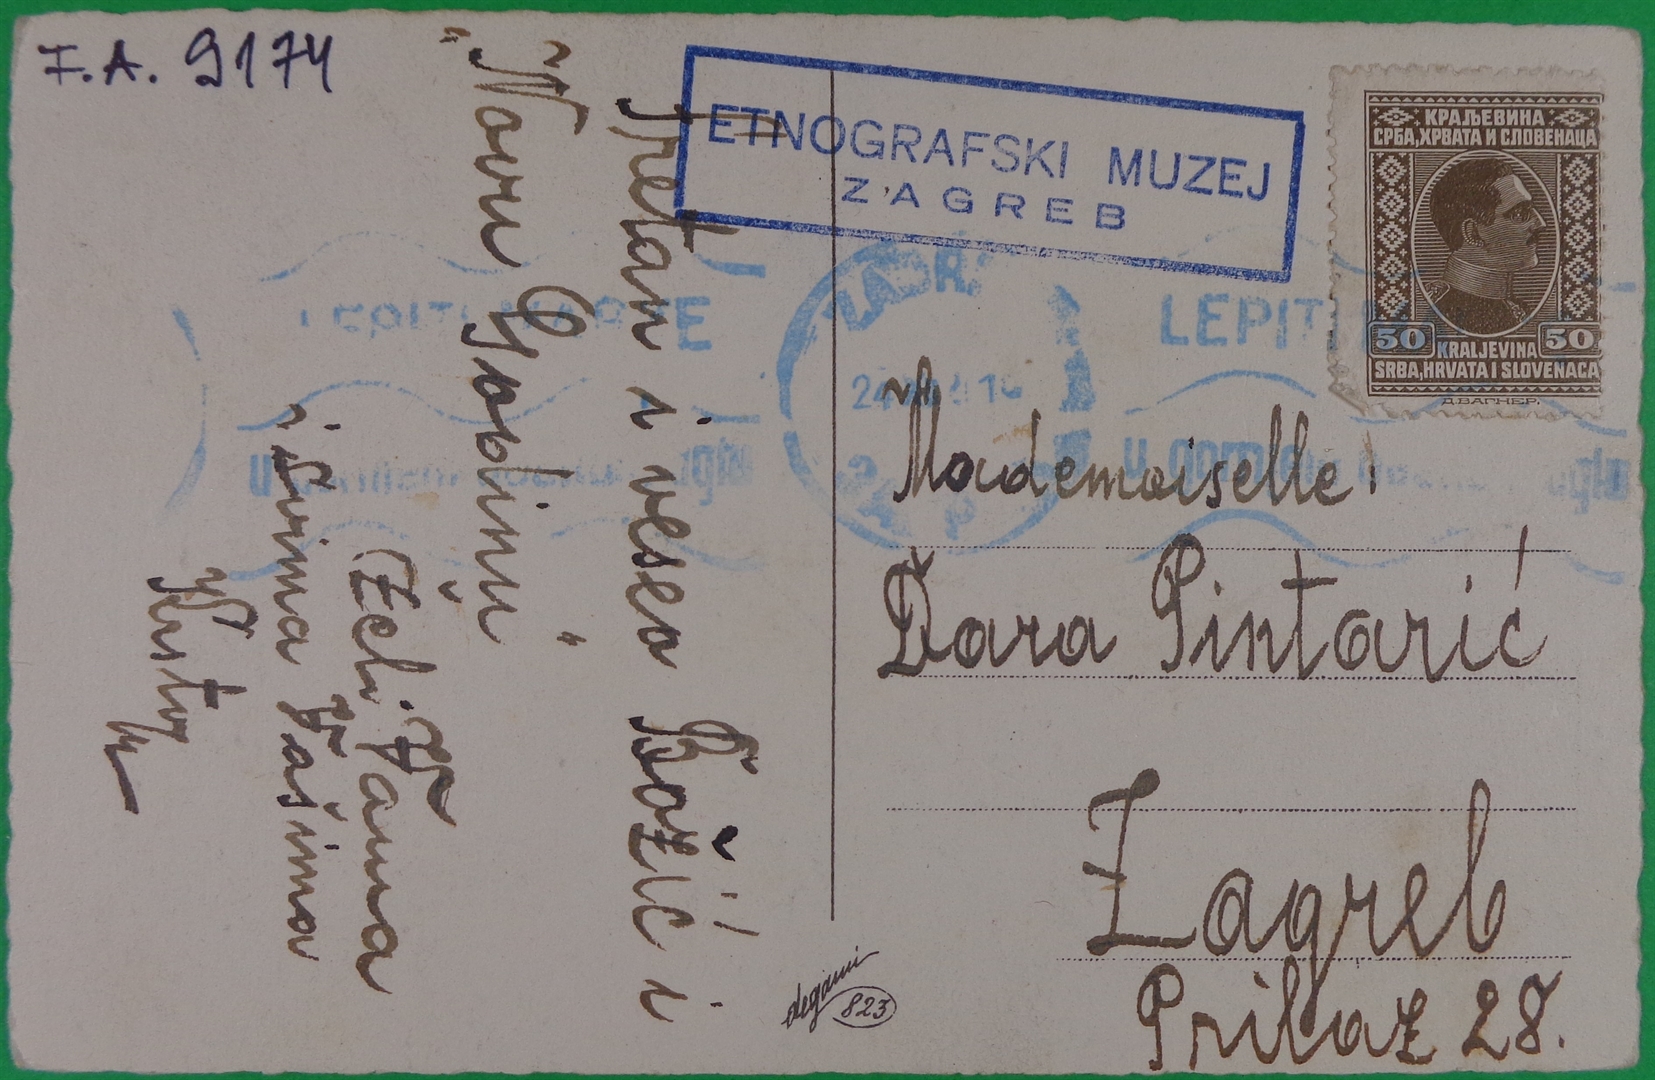 F.A. 9174
ETNOGRAFSKI MUZEJ
ZAGREB
КРАЉЕВИНА
СРБА, ХРВАТА И СЛОВЕНАЦА
50 50
KRALJEVINA
SRBA, HRVATA I SLOVENACA
Д.ВАГНЕР.
ZAGREB
LEPITE MARKE
LEPITE
u gornjem desnom uglu
u gornjem uglu
Sretan i veseo Božić i
"Novu Godinu"
Želi Vama
i Svima Vašima
Mademoiselle!
Dara Pintarić
Zagreb
Prilaz 28.
degami
823